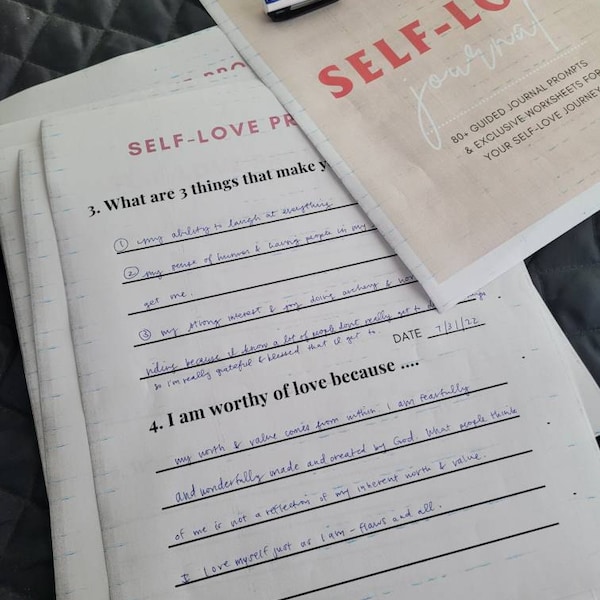 SELF-LO
journal
80+ GUIDED JOURNAL PROMPTS
& EXCLUSIVE WORKSHEETS FOR
YOUR SELF-LOVE JOURNEY
PRO
SELF-LOVE PR
3. What are 3 things that make y
① my ability to laugh at everything
② my sense of humor & having people in my
get me.
③ my strong interest & joy doing archery &
riding because I know a lot of people don't really get to
so I'm really grateful & blessed that I get to.
DATE 7/31/22
4. I am worthy of love because ....
my worth & value comes from within. I am fearfully
and wonderfully made and created by God. What people think
of me is not a reflection of my inherent worth & value.
I love myself just as I am - flaws and all.